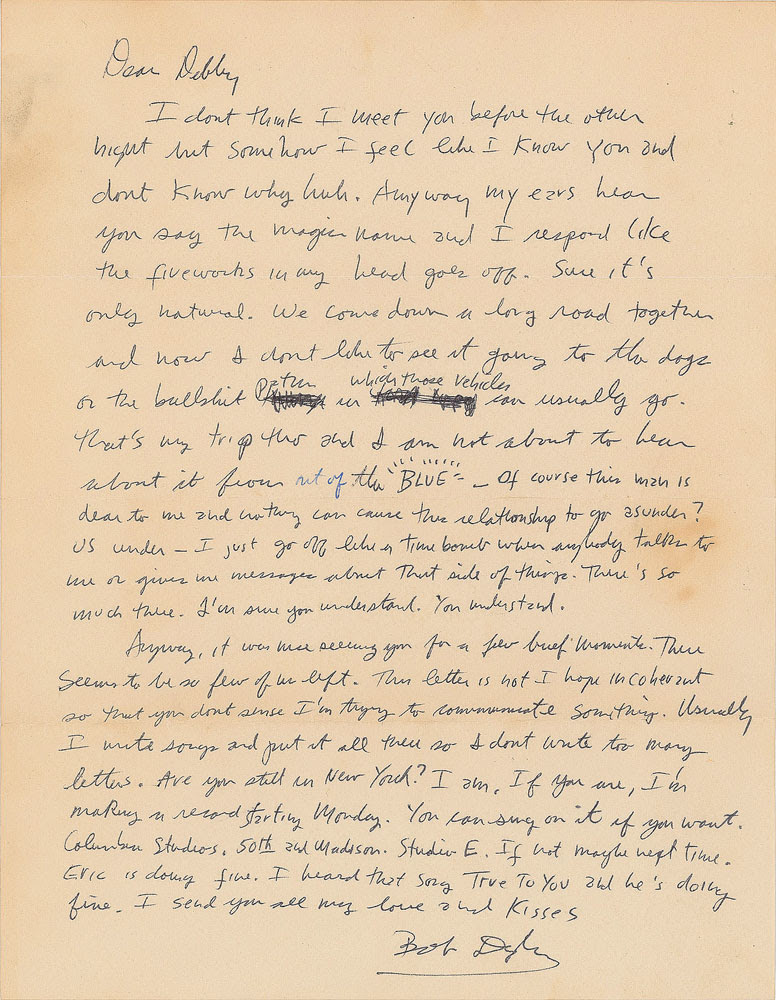 Dear Debby
I dont think I meet you before the other
night but somehow I feel like I know you and
dont know why huh. Anyway my ears hear
you say the magic name and I respond like
the fireworks in my head goes off. Sure it's
only natural. We come down a long road together
and now I dont like to see it going to the dogs
or the bullshit Pattern in which those vehicles can usually go.
That's my trip tho and I am not about to hear
about it from out of the "BLUE" - Of course this man is
dear to me and nothing can cause this relationship to go asunder?
US under - I just go off like a time bomb when anybody talks to
me or gives me messages about that side of things. There's so
much there. I'm sure you understand. You understand.
Anyway, it was nice seeing you for a few brief moments. There
seems to be so few of us left. This letter is not I hope incoherant
so that you dont sense I'm trying to communicate something. Usually
I write songs and put it all there so I dont write too many
letters. Are you still in New York? I am, If you are, I'm
making a record starting Monday. You can sing on it if you want.
Columbia Studios. 50th and Madison. Studio E. If not maybe next time.
Eric is doing fine. I heard that song True To You and he's doing
fine. I send you all my love and kisses
Bob Dylan